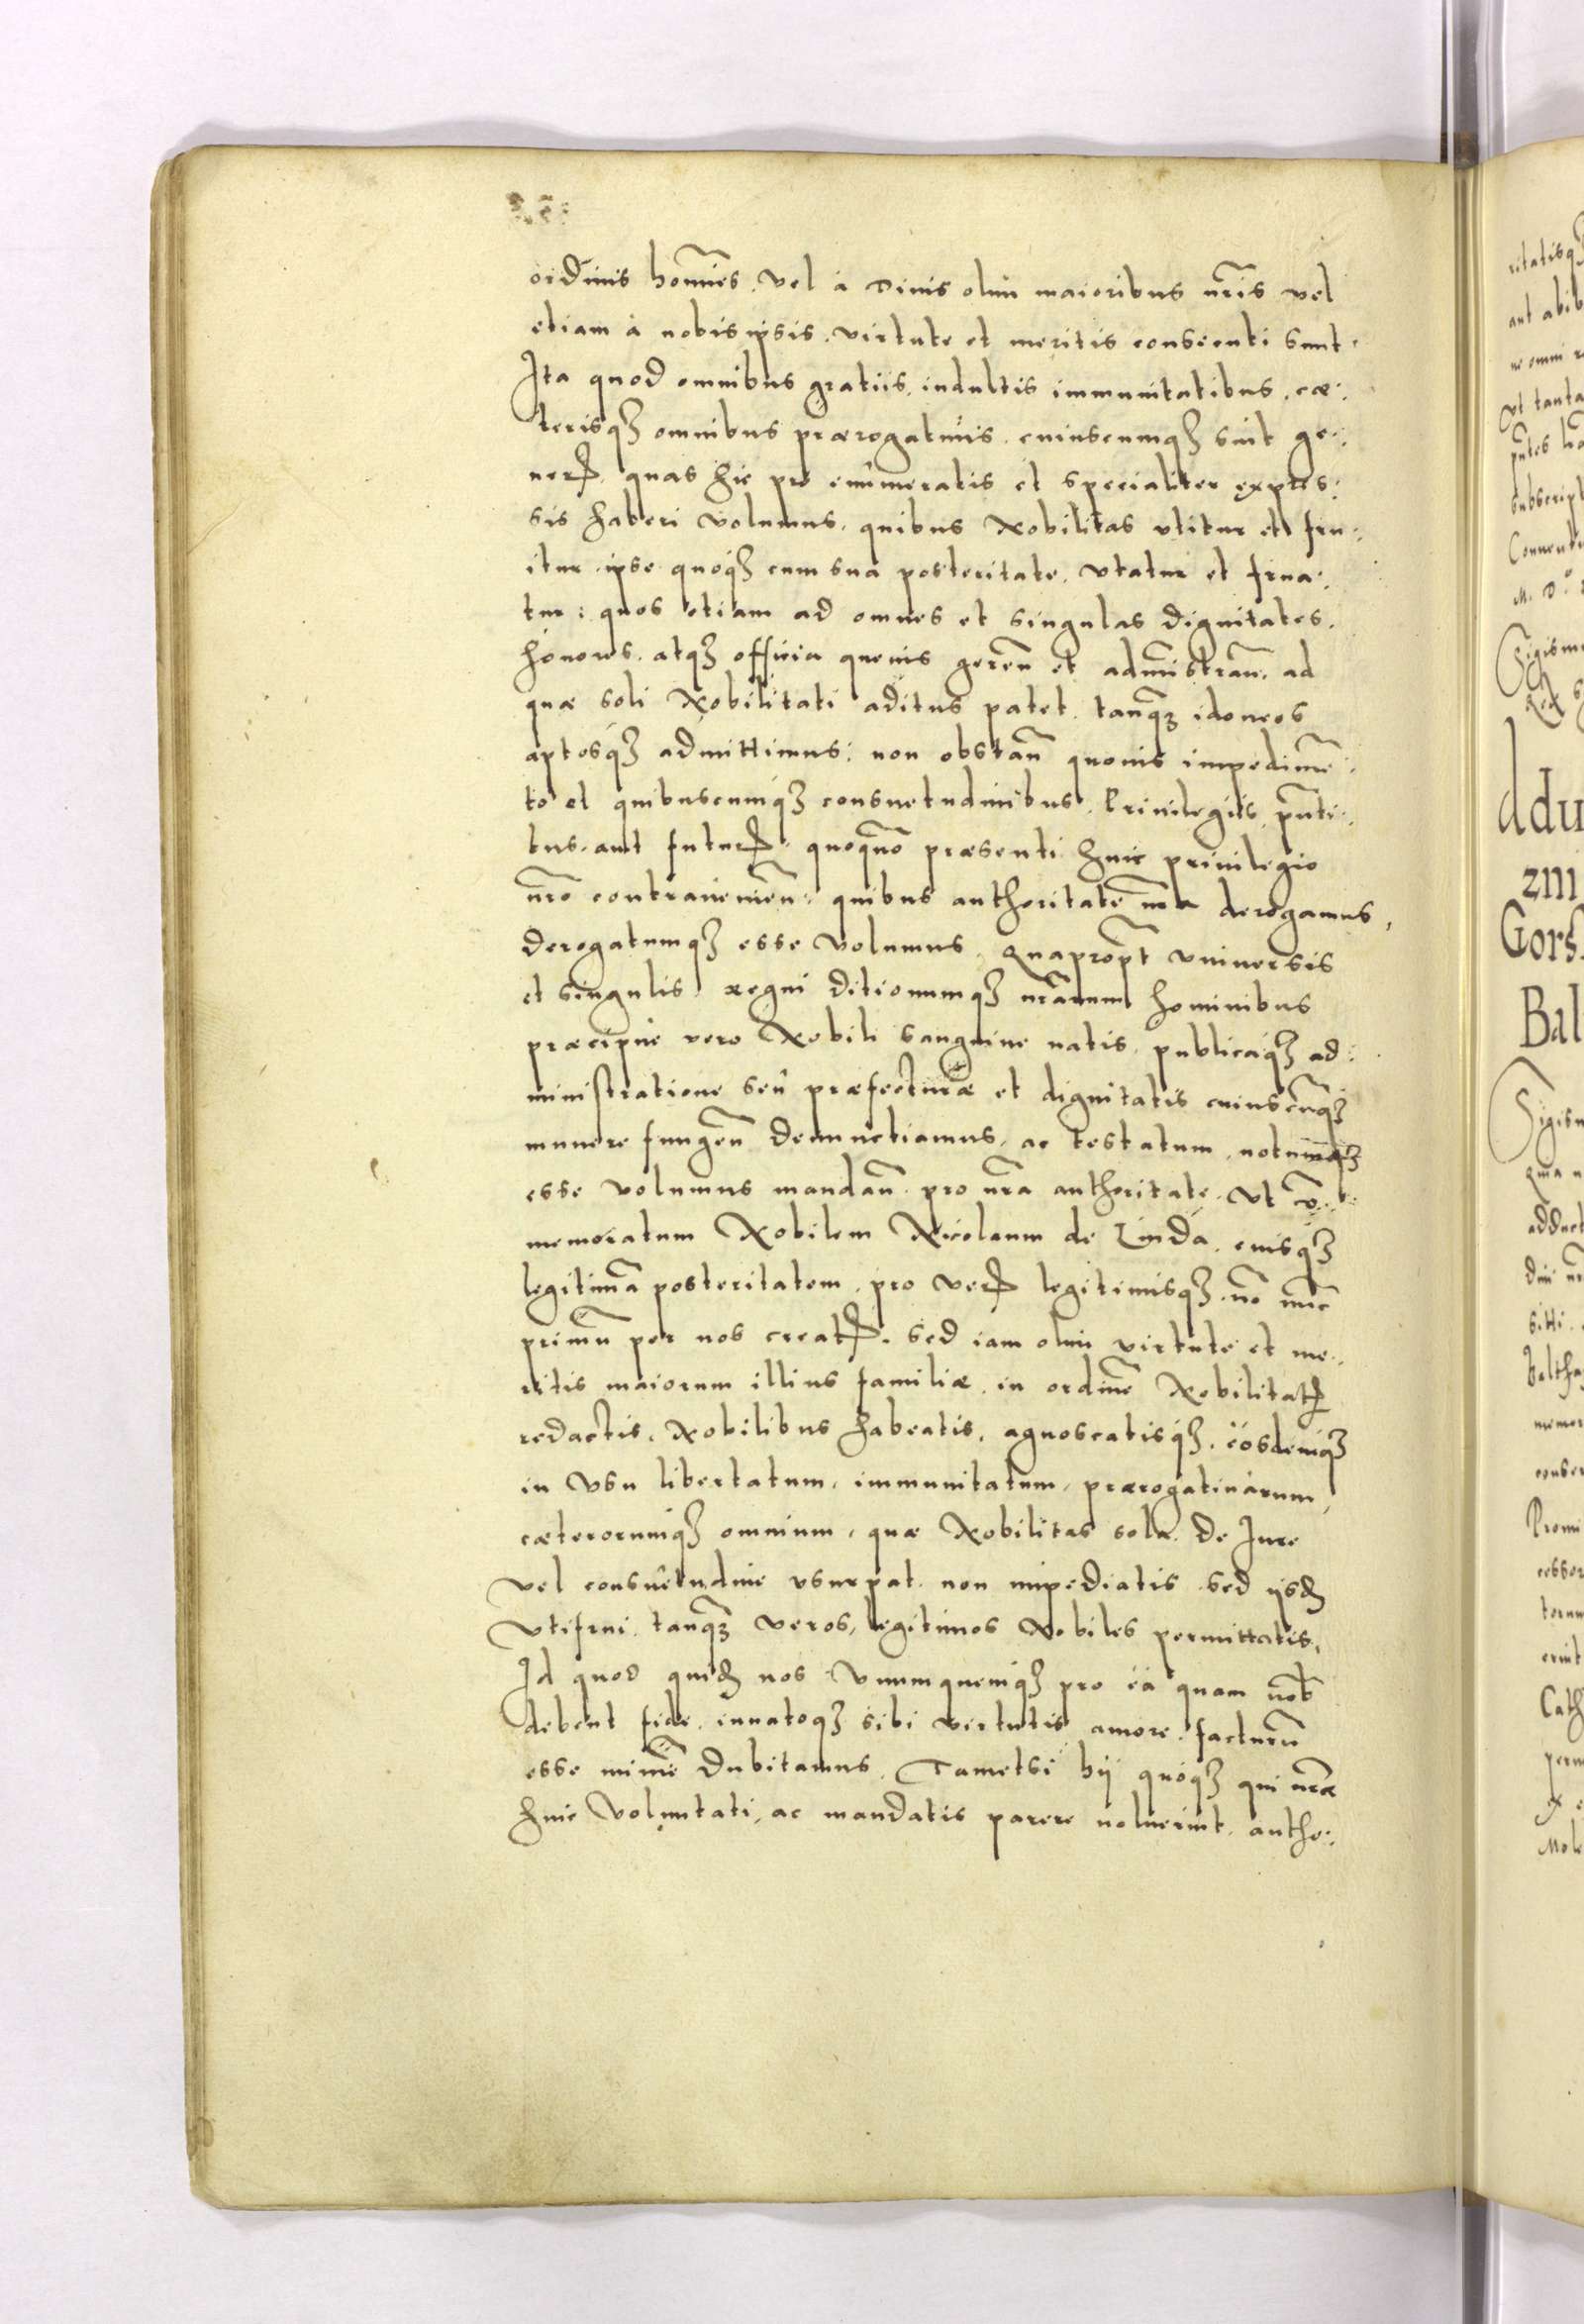 ordinis hom̃nes. vel à Divis olim maioribus nr̃is vel
etiam à nobis ipsis. virtute et meritis consecuti sunt.
Ita quod omnibus gratiis, indultis immunitatibus, cæ:
terisqꝫ omnibus prærogativis. cuiuscumqꝫ sint ge:
nerꝭ. quas hic pro enumeratis et specialiter expres:
sis haberi volumus. quibus Nobilitas utitur et fru:
itur. ipse quoqꝫ cum sua posteritate. utatur et frua:
tur: quos etiam ad omnes et singulas dignitates.
honores. atqꝫ officia quevis gereñ et administrañ. ad
quæ soli Nobilitati aditus patet. tanqꝫ idoneos
aptosqꝫ admittimus: non obstañ quovis impedimẽ:
to et quibuscumqꝫ consuetudinibus. Privilegiis. pñti:
bus. aut futurꝭ. quoquõ præsenti huic privilegio
nr̃o contravenieñ: quibus authoritate nr̃a derogamus,
derogatumqꝫ esse volumus. Quapropt̃ universis
et singulis. regni ditionumqꝫ nr̃arum hominibus
præcipue vero Nobili sanguine natis. publicaqꝫ ad:
ministratione seu præfecturæ et dignitatis cuiuscũqꝫ
munere fungeñ denunctiamus. ac testatum, notumqꝫ
esse volumus mandañ. pro nr̃a authoritate. ut
memoratum Nobilem Nicolaum de Linda. eiusqꝫ
legitimã posteritatem. pro verꝭ legitimisqꝫ. nõ nũc
primũ per nos creatꝭ. sed iam olim virtute et me:
ritis maiorum illius familiæ. in ordinẽ Nobilitatꝭ
redactis. Nobilibus habeatis. agnoscatisqꝫ. eosdemqꝫ
in usu libertatum, immunitatum, prærogativarum,
cæterorumqꝫ omnium, quæ Nobilitas sola. de Iure
vel consuetudine usurpat. non impediatis. sed iisdẽ
uti frui. tanqꝫ veros, legitimos Nobiles permittatis.
Id quod quidẽ nos Unumquemqꝫ pro ea quam nob̃
debent fide. innatoqꝫ sibi virtutis amore. facturũ
esse minimẽ dubitamus. Tametsi hij quoqꝫ qui nr̃æ
huic voluntati, ac mandatis parere noluerint. autho: